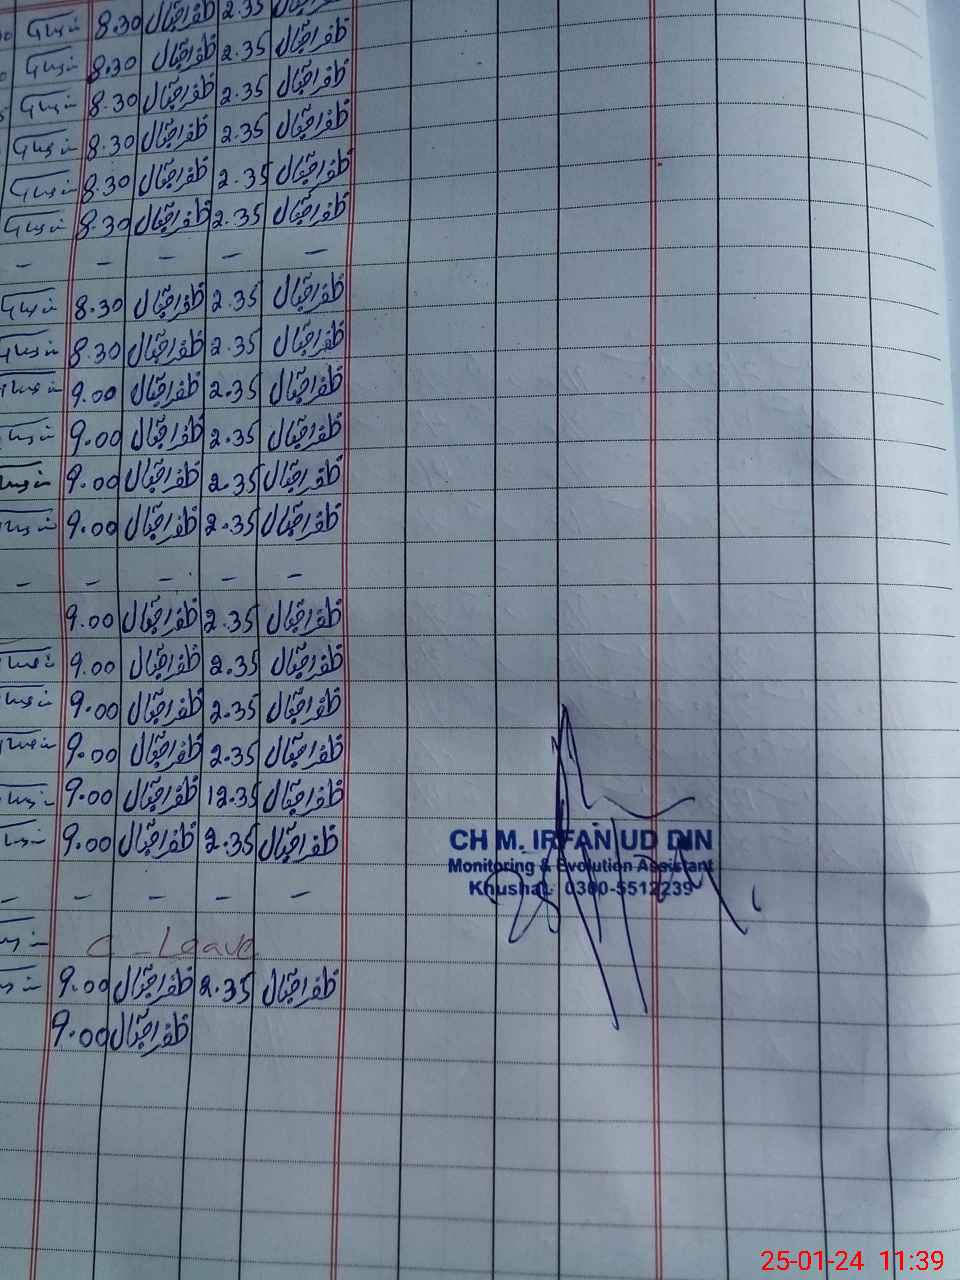 8.30 ظفراقبال 2.35
8.30 ظفراقبال 2.35 ظفراقبال
8.30 ظفراقبال 2.35 ظفراقبال
8.30 ظفراقبال 2.35 ظفراقبال
8.30 ظفراقبال 2.35 ظفراقبال
8.30 ظفراقبال 2.35 ظفراقبال
- - - - -
8.30 ظفراقبال 2.35 ظفراقبال
8.30 ظفراقبال 2.35 ظفراقبال
9.00 ظفراقبال 2.35 ظفراقبال
9.00 ظفراقبال 2.35 ظفراقبال
9.00 ظفراقبال 2.35 ظفراقبال
9.00 ظفراقبال 2.35 ظفراقبال
- - - - -
9.00 ظفراقبال 2.35 ظفراقبال
9.00 ظفراقبال 2.35 ظفراقبال
9.00 ظفراقبال 2.35 ظفراقبال
9.00 ظفراقبال 2.35 ظفراقبال
9.00 ظفراقبال 12.35 ظفراقبال
9.00 ظفراقبال 2.35 ظفراقبال
- - - - -
C - Leave
9.00 ظفراقبال 2.35 ظفراقبال
9.00 ظفراقبال
CH M. IRFAN UD DIN
Monitoring & Evolution Assistant
Khushab 0300-5512239
25-01-24 11:39